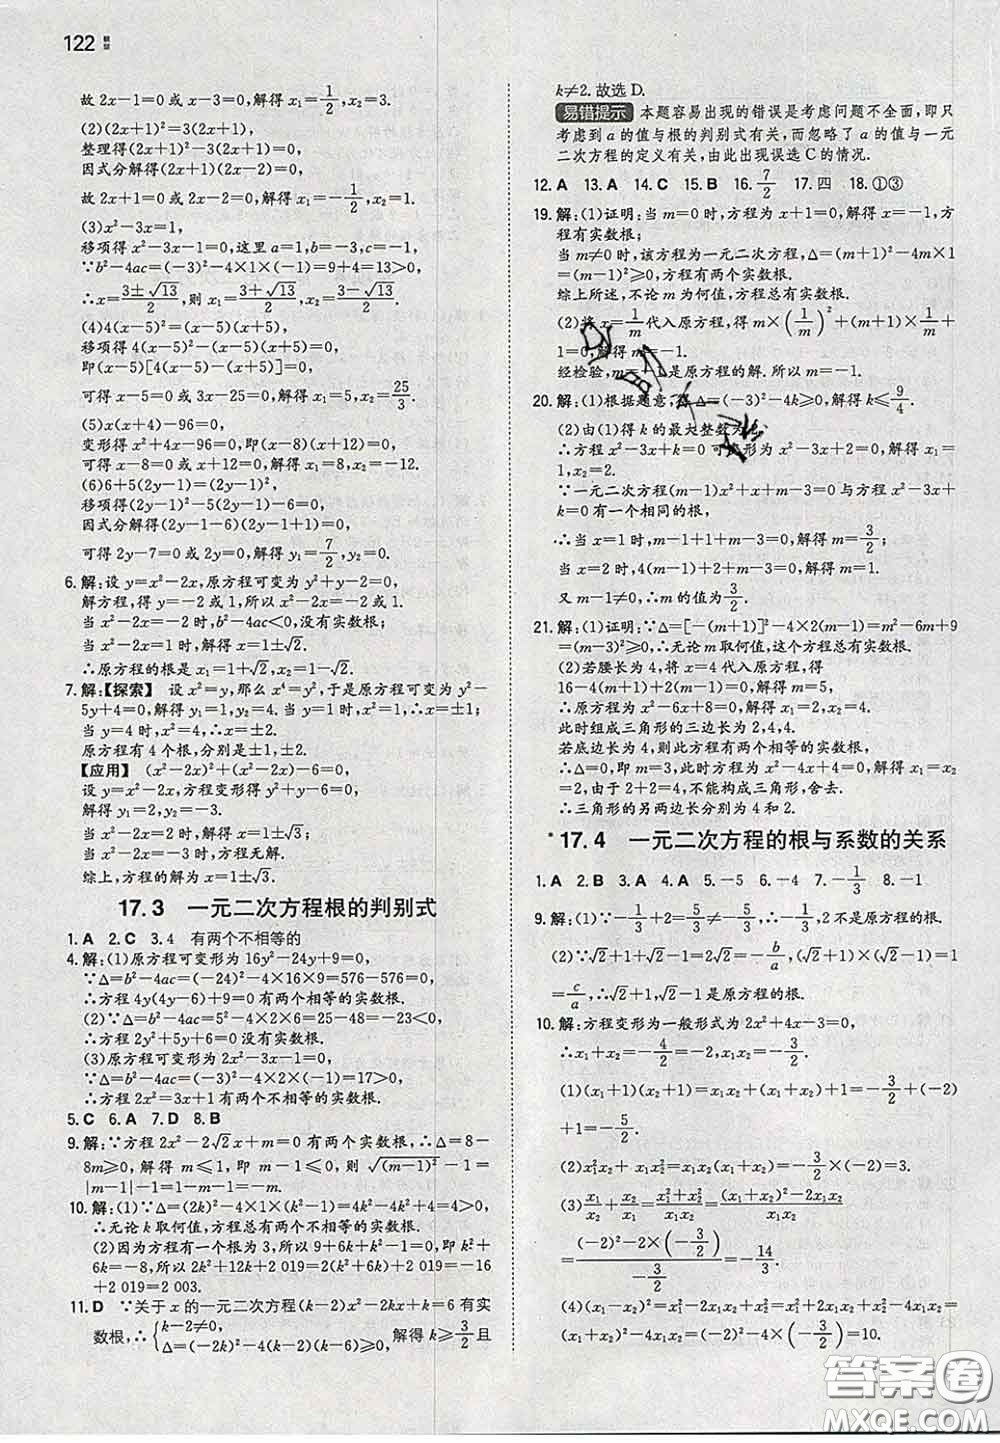 122
故 2x-1=0 或 x-3=0,解得 x₁=1/2,x₂=3.
(2)(2x+1)²=3(2x+1),
整理得(2x+1)²-3(2x+1)=0,
因式分解得(2x+1)(2x-2)=0,
故 2x+1=0 或 2x-2=0,解得 x₁=-1/2,x₂=1.
(3)x²-3x=1,
移项得 x²-3x-1=0,这里 a=1,b=-3,c=-1,
∵b²-4ac=(-3)²-4×1×(-1)=9+4=13>0,
∴x=(3±√13)/2,则 x₁=(3+√13)/2,x₂=(3-√13)/2.
(4)4(x-5)²=(x-5)(x+5),
移项得 4(x-5)²-(x-5)(x+5)=0,
即(x-5)[4(x-5)-(x+5)]=0,
可得 x-5=0 或 3x-25=0,解得 x₁=5,x₂=25/3.
(5)x(x+4)-96=0,
变形得 x²+4x-96=0,即(x-8)(x+12)=0,
可得 x-8=0 或 x+12=0,解得 x₁=8,x₂=-12.
(6)6+5(2y-1)=(2y-1)²,
移项得(2y-1)²-5(2y-1)-6=0,
因式分解得(2y-1-6)(2y-1+1)=0,
可得 2y-7=0 或 2y=0,解得 y₁=7/2,y₂=0.
6. 解:设 y=x²-2x,原方程可变为 y²+y-2=0,
解方程,得 y=-2 或 1,所以 x²-2x=-2 或 1.
当 x²-2x=-2 时,b²-4ac<0,没有实数根;
当 x²-2x=1 时,解得 x=1±√2.
∴原方程的根是 x₁=1+√2,x₂=1-√2.
7. 解:【探索】 设 x²=y,那么 x⁴=y²,于是原方程可变为 y²-
5y+4=0,解得 y₁=1,y₂=4. 当 y=1 时,x²=1,∴x=±1;
当 y=4 时,x²=4,∴x=±2.
原方程有 4 个根,分别是±1,±2.
【应用】 (x²-2x)²+(x²-2x)-6=0,
设 y=x²-2x,方程变形得 y²+y-6=0,
解得 y=2,y=-3.
当 x²-2x=2 时,解得 x=1±√3;
当 x²-2x=-3 时,方程无解.
综上,方程的解为 x=1±√3.
17.3 一元二次方程根的判别式
1. A 2. C 3. 4 有两个不相等的
4. 解:(1)原方程可变形为 16y²-24y+9=0,
∵Δ=b²-4ac=(-24)²-4×16×9=576-576=0,
∴方程 4y(4y-6)+9=0 有两个相等的实数根.
(2)∵Δ=b²-4ac=5²-4×2×6=25-48=-23<0,
∴方程 2y²+5y+6=0 没有实数根.
(3)原方程可变形为 2x²-3x-1=0,
∵Δ=b²-4ac=(-3)²-4×2×(-1)=17>0,
∴方程 2x²=3x+1 有两个不相等的实数根.
5. C 6. A 7. D 8. B
9. 解:∵方程 2x²-2√2x+m=0 有两个实数根,∴Δ=8-
8m≥0,解得 m≤1,即 m-1≤0,则 √(m-1)²-|-m|=
|m-1|-1=1-m-1=-m.
10. 解:(1)∵Δ=(2k)²-4×1×(k²-1)=4k²-4k²+4=4>0,
∴无论 k 取何值,方程总有两个不相等的实数根.
(2)因为方程有一个根为 3,所以 9+6k+k²-1=0,即 k²+
6k=-8,所以 2k²+12k+2 019=2(k²+6k)+2 019=-16
+2 019=2 003.
11. D ∵关于 x 的一元二次方程(k-2)x²-2kx+k=6 有实
数根,∴{k-2≠0, Δ=(-2k)²-4(k-2)(k-6)≥0, 解得 k≥3/2 且
k≠2. 故选 D.
易错提示 本题容易出现的错误是考虑问题不全面,即只
考虑到 a 的值与根的判别式有关,而忽略了 a 的值与一元
二次方程的定义有关,由此出现误选 C 的情况.
12. A 13. A 14. C 15. B 16. 7/2 17. 四 18. ①③
19. 解:(1)证明:当 m=0 时,方程为 x+1=0,解得 x=-1,方
程有实数根;
当 m≠0 时,该方程为一元二次方程,Δ=(m+1)²-4m×
1=(m-1)²≥0,方程有两个实数根;
综上所述,不论 m 为何值,方程总有实数根.
(2)将 x=1/m 代入原方程,得 m×(1/m)²+(m+1)×1/m+
1=0,解得 m=-1.
经检验,m=-1 是原方程的解. 所以 m=-1.
20. 解:(1)根据题意,得 Δ=(-3)²-4k≥0,解得 k≤9/4.
(2)由(1)得 k 的最大整数为 2,
∴方程 x²-3x+k=0 可变形为 x²-3x+2=0,解得 x₁=
1,x₂=2.
∵一元二次方程(m-1)x²+x+m-3=0 与方程 x²-3x+
k=0 有一个相同的根,
∴当 x=1 时,m-1+1+m-3=0,解得 m=3/2;
当 x=2 时,4(m-1)+2+m-3=0,解得 m=1.
又 m-1≠0,∴m 的值为3/2.
21. 解:(1)证明:∵Δ=[-(m+1)]²-4×2(m-1)=m²-6m+9
=(m-3)²≥0,∴无论 m 取何值,这个方程总有实数根.
(2)若腰长为 4,将 x=4 代入原方程,得
16-4(m+1)+2(m-1)=0,解得 m=5,
∴原方程为 x²-6x+8=0,解得 x₁=2,x₂=4.
此时组成三角形的三边长为 2,4,4.
若底边长为 4,则此方程有两个相等的实数根,
∴Δ=0,即 m=3,此时方程为 x²-4x+4=0,解得 x₁=x₂
=2,由于 2+2=4,不能构成三角形,舍去.
∴三角形的另两边长分别为 4 和 2.
*17.4 一元二次方程的根与系数的关系
1. A 2. B 3. A 4. A 5. -5 6. -4 7. -1/3 8. -1
9. 解:(1)∵-1/3+2=5/3≠-5/3,∴-1/3,2 不是原方程的根.
(2)∵√2+1+√2-1=2√2=-b/a,(√2+1)×(√2-1)=1
=c/a,∴√2+1,√2-1 是原方程的根.
10. 解:方程变形为一般形式为 2x²+4x-3=0,
∴x₁+x₂=-4/2=-2,x₁x₂=-3/2.
(1)(x₁+1)(x₂+1)=x₁x₂+(x₁+x₂)+1=-3/2+(-2)
+1=-5/2.
(2)x₁²x₂+x₁x₂²=x₁x₂(x₁+x₂)=-3/2×(-2)=3.
(3)x₁/x₂+x₂/x₁=(x₁²+x₂²)/(x₁x₂)=((x₁+x₂)²-2x₁x₂)/(x₁x₂)
=((-2)²-2×(-3/2))/(-3/2)=-14/3.
(4)(x₁-x₂)²=x₁²-2x₁x₂+x₂²=(x₁+x₂)²-4x₁x₂=
(-2)²-4×(-3/2)=10.
答案圈
MXQE.COM